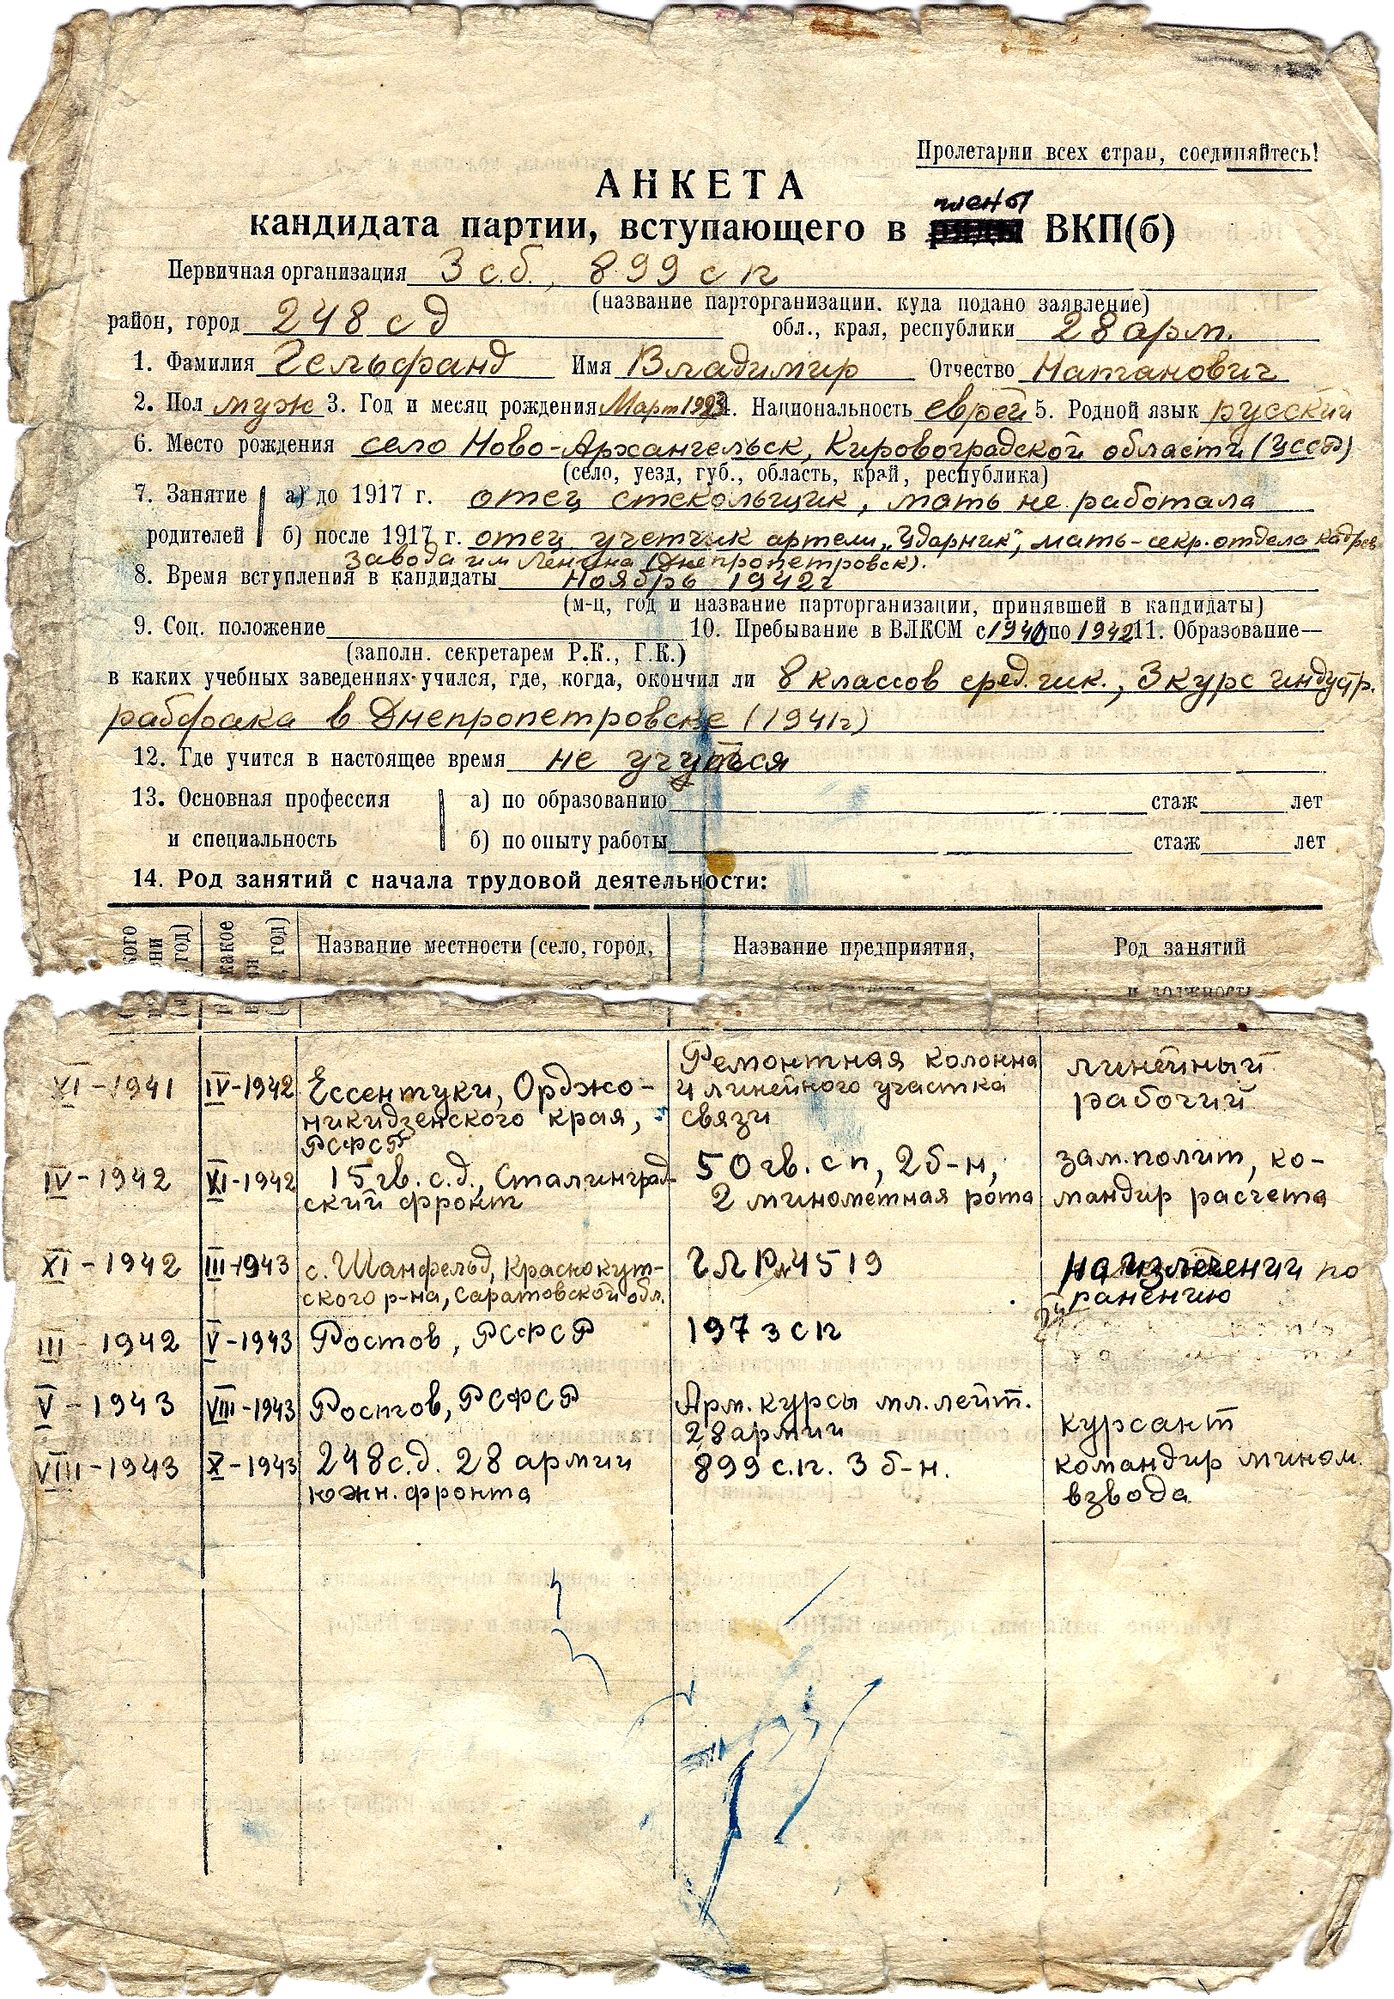 Пролетарии всех стран, соединяйтесь!
АНКЕТА
члены
кандидата партии, вступающего в ряды ВКП(б)
Первичная организация 3 с.б., 899 сп
(название парторганизации. куда подано заявление)
район, город 248 сд обл., края, республики 28 арм.
1. Фамилия Гельфанд Имя Владимир Отчество Натанович
2. Пол муж 3. Год и месяц рождения Март 1923 4. Национальность еврей 5. Родной язык русский
6. Место рождения село Ново-Архангельск, Кировоградской области (УССР)
(село, уезд, губ., область, край, республика)
7. Занятие а) до 1917 г. отец стекольщик, мать не работала
родителей б) после 1917 г. отец учетчик артели „Ударник", мать-секр. отдела кадров
завода им Ленина (Днепропетровск).
8. Время вступления в кандидаты ноябрь 1942г
(м-ц, год и название парторганизации, принявшей в кандидаты)
9. Соц. положение 10. Пребывание в ВЛКСМ с 1940 по 1942 11. Образование—
(заполн. секретарем Р.К., Г.К.)
в каких учебных заведениях учился, где, когда, окончил ли 8 классов сред. шк., 3 курс индустр.
рабфака в Днепропетровске (1941г)
12. Где учится в настоящее время не учится
13. Основная профессия а) по образованию стаж лет
и специальность б) по опыту работы стаж лет
14. Род занятий с начала трудовой деятельности:
Название местности (село, город, Название предприятия, Род занятий
и должность
XI-1941 IV-1942 Ессентуки, Орджо- Ремонтная колонна линейный
никидзенского края, и линейного участка рабочий
РСФСР связи
IV-1942 XI-1942 15 гв. с.д., Сталинград- 50 гв. сп, 2 б-н, зам. полит, ко-
ский фронт 2 минометная рота мандир расчета
XI-1942 III-1943 с. Шанфельд, Краснокут- ГЛР №4519 на излечении по
ского р-на, Саратовской обл. ранению
III-1942 V-1943 Ростов, РСФСР 197 зсп
V-1943 VIII-1943 Ростов, РСФСР Арм. курсы мл. лейт. курсант
28 армии
VIII-1943 X-1943 248 с.д. 28 армии 899 с.п. 3 б-н. командир мином.
южн. фронта взвода